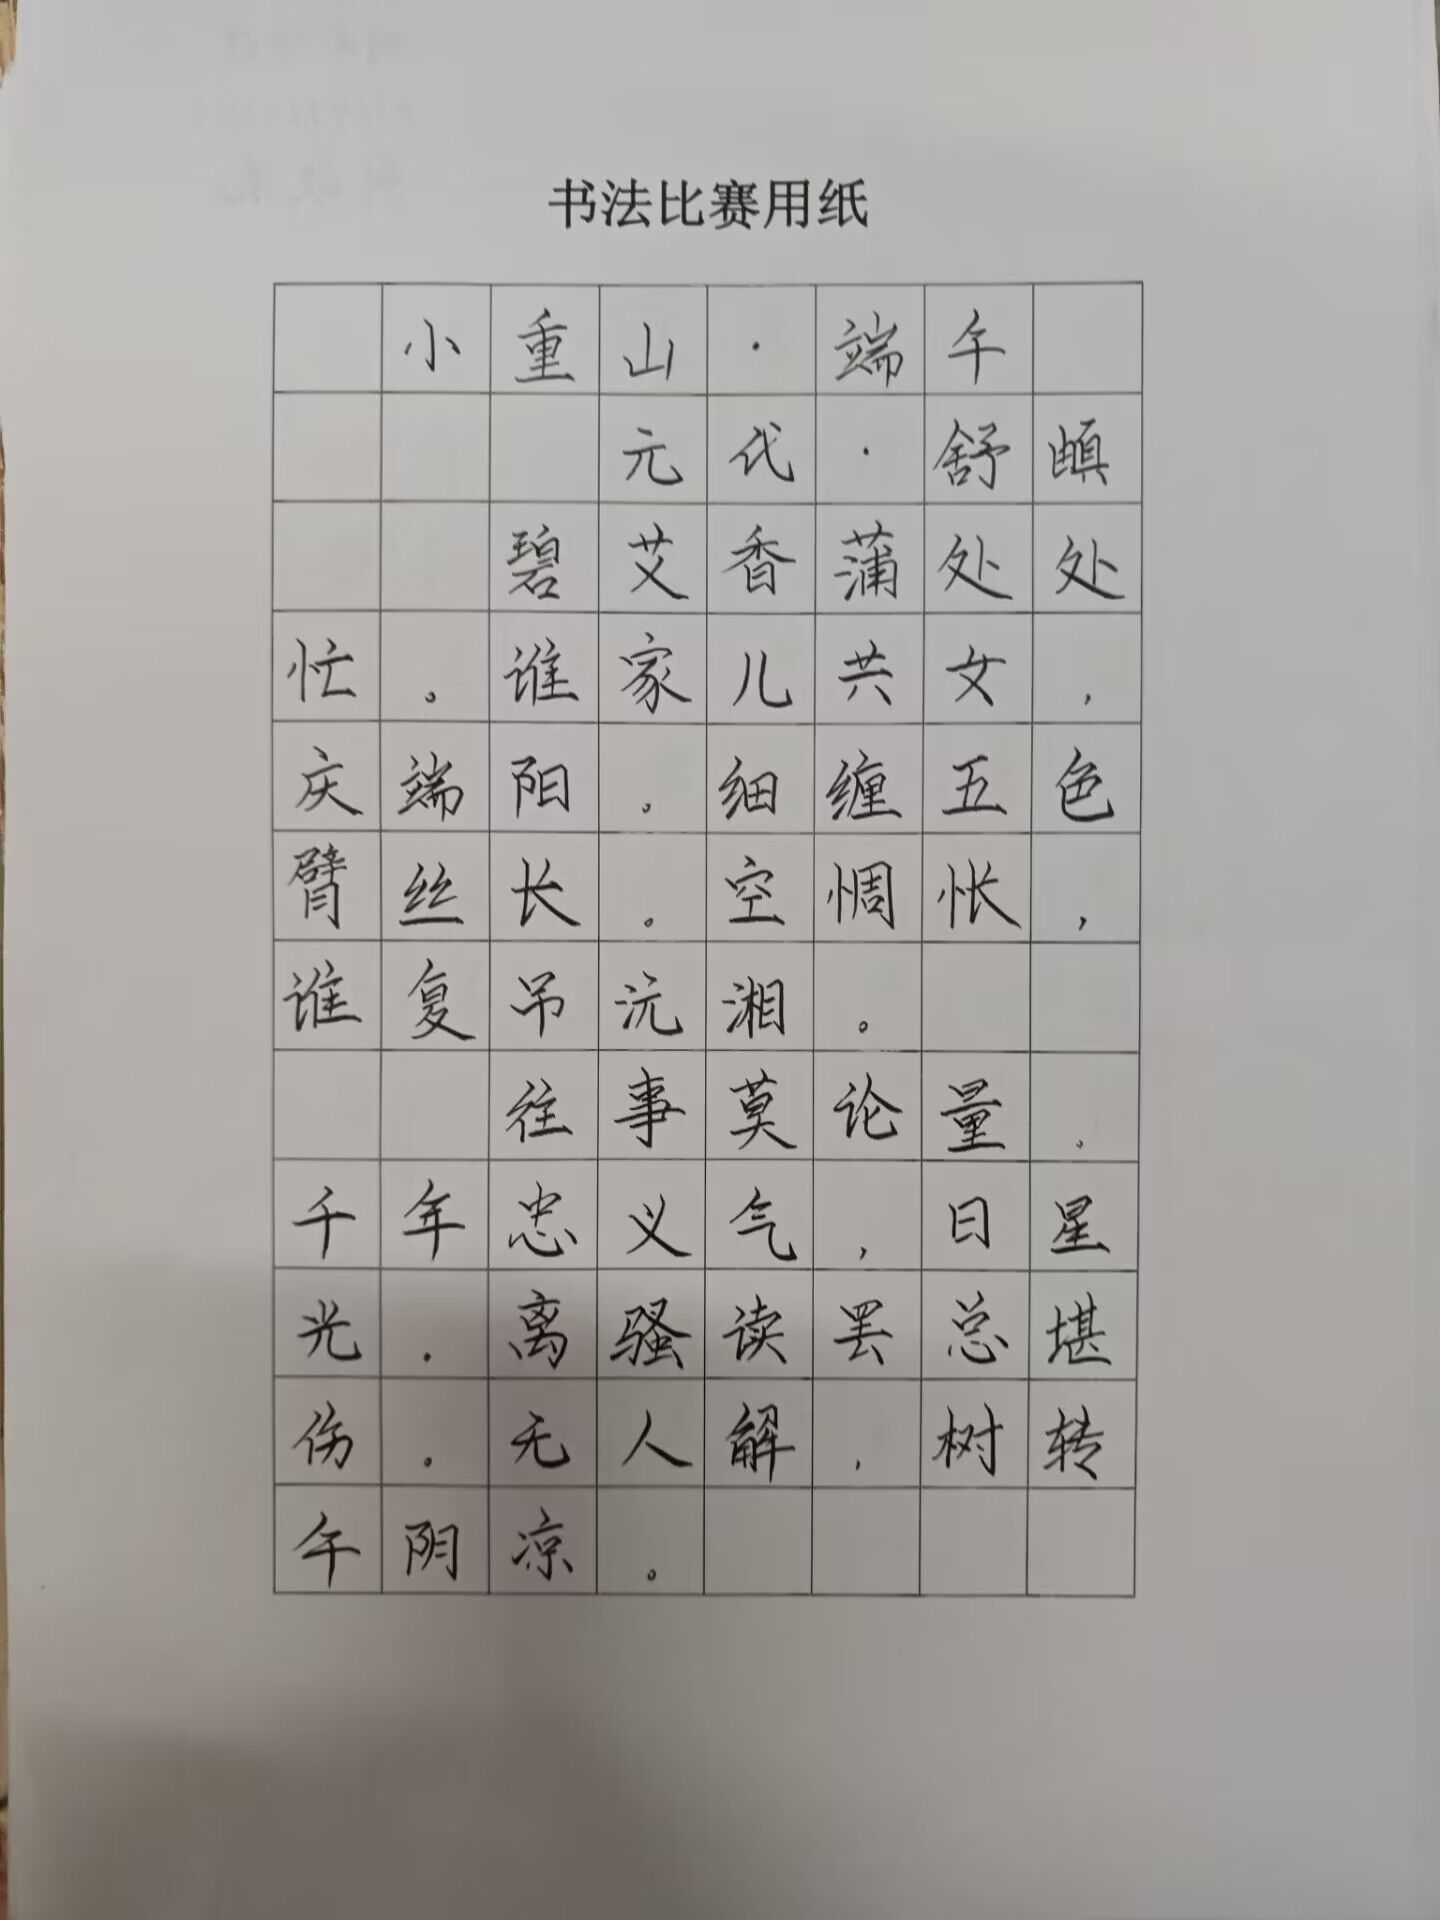 书法比赛用纸
小重山·端午
元代·舒頔
碧艾香蒲处处
忙。谁家儿共女，
庆端阳。细缠五色
臂丝长。空惆怅，
谁复吊沅湘。
往事莫论量。
千年忠义气，日星
光。离骚读罢总堪
伤。无人解，树转
午阴凉。